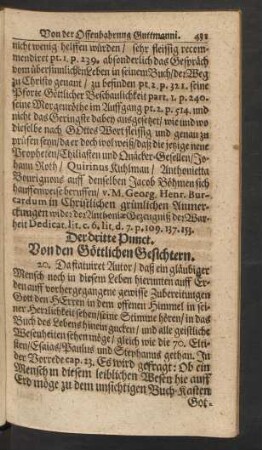 Von der Offenbahrung Guttmanni. 431
nicht wenig helffen würden / sehr fleissig recom-
mendiret pt. 1. p. 239. absonderlich das Gespräch
vom übersinnlichen Leben in seinem Buch / der Weg
zu Christo genant / zu befinden pt. 2. p. 321. seine
Pforte Göttlicher Beschauligkeit part. 1. p. 240.
seine Morgenröthe im Auffgang pt. 2. p. 514. und
nicht das Geringste dabey ausgesetzet / wie und wo
dieselbe nach Gottes Wort fleissig und genau zu
prüfen seyn / da er doch wol weiß / daß die jetzige neue
Propheten / Chiliasten und Quäcker-Gesellen / Jo-
hann Roth / Quirinus Kuhlman / Anthonietta
Bourignons auff denselben Jacob Böhmen sich
hauffenweise beruffen / v. M. Georg. Henr. Bur-
cardum in Christlichen gründlichen Anmer-
ckungen wider der Anthoniæ Gezeugniß der War-
heit Dedicat. lit. c. 6. lit. d. 7. p. 109. 137. 153.
Der dritte Punct.
Von den Göttlichen Gesichtern.
20. Da statuiret Autor / daß ein gläubiger
Mensch noch in diesem Leben hierunten auff Er-
den auff vorhergegangene gewisse Zubereitungen
Gott den HErrn in dem offenen Himmel in sei-
ner Herzligkeit sehen / seine Stimme hören / in das
Buch des Lebens hinein gucken / und alle geistliche
Wesenheiten sehen möge / gleich wie die 70. Elti-
sten / Esaias / Paulus und Stephanus gethan. In
der Vorrede cap. 23. Es wird gefragt: Ob ein
Mensch in diesem leiblichen Wesen hie auff
Erd möge zu dem unsichtigen Buch-Kasten
Got-